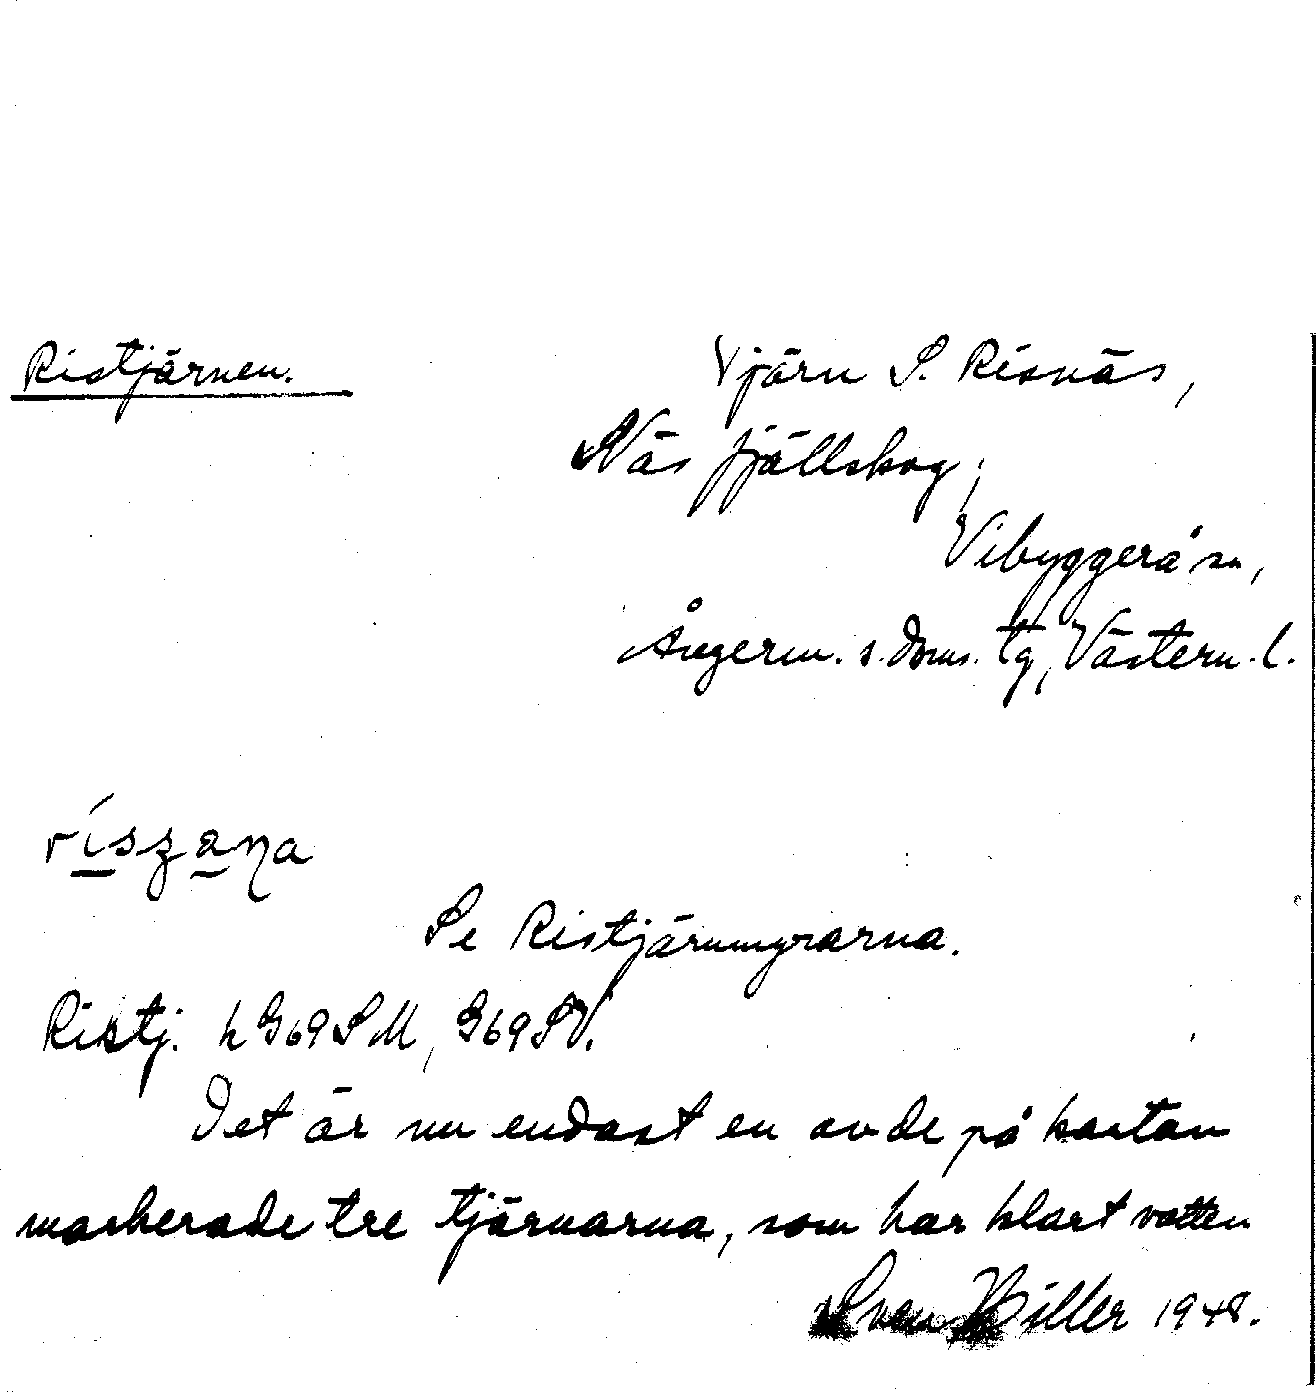 Ristjärnen.
Tjärn S. Risnäs,
Näs fjällskog,
Vibyggerå sn,
Ångerm. s. doms. tg, Västern. l.
Se Ristjärnmyrarna.
Ristj. h G69SM, G69SV.
Det är nu endast en av de på kartan
markerade tre tjärnarna, som har klart vatten
Sven Hiller 1948.